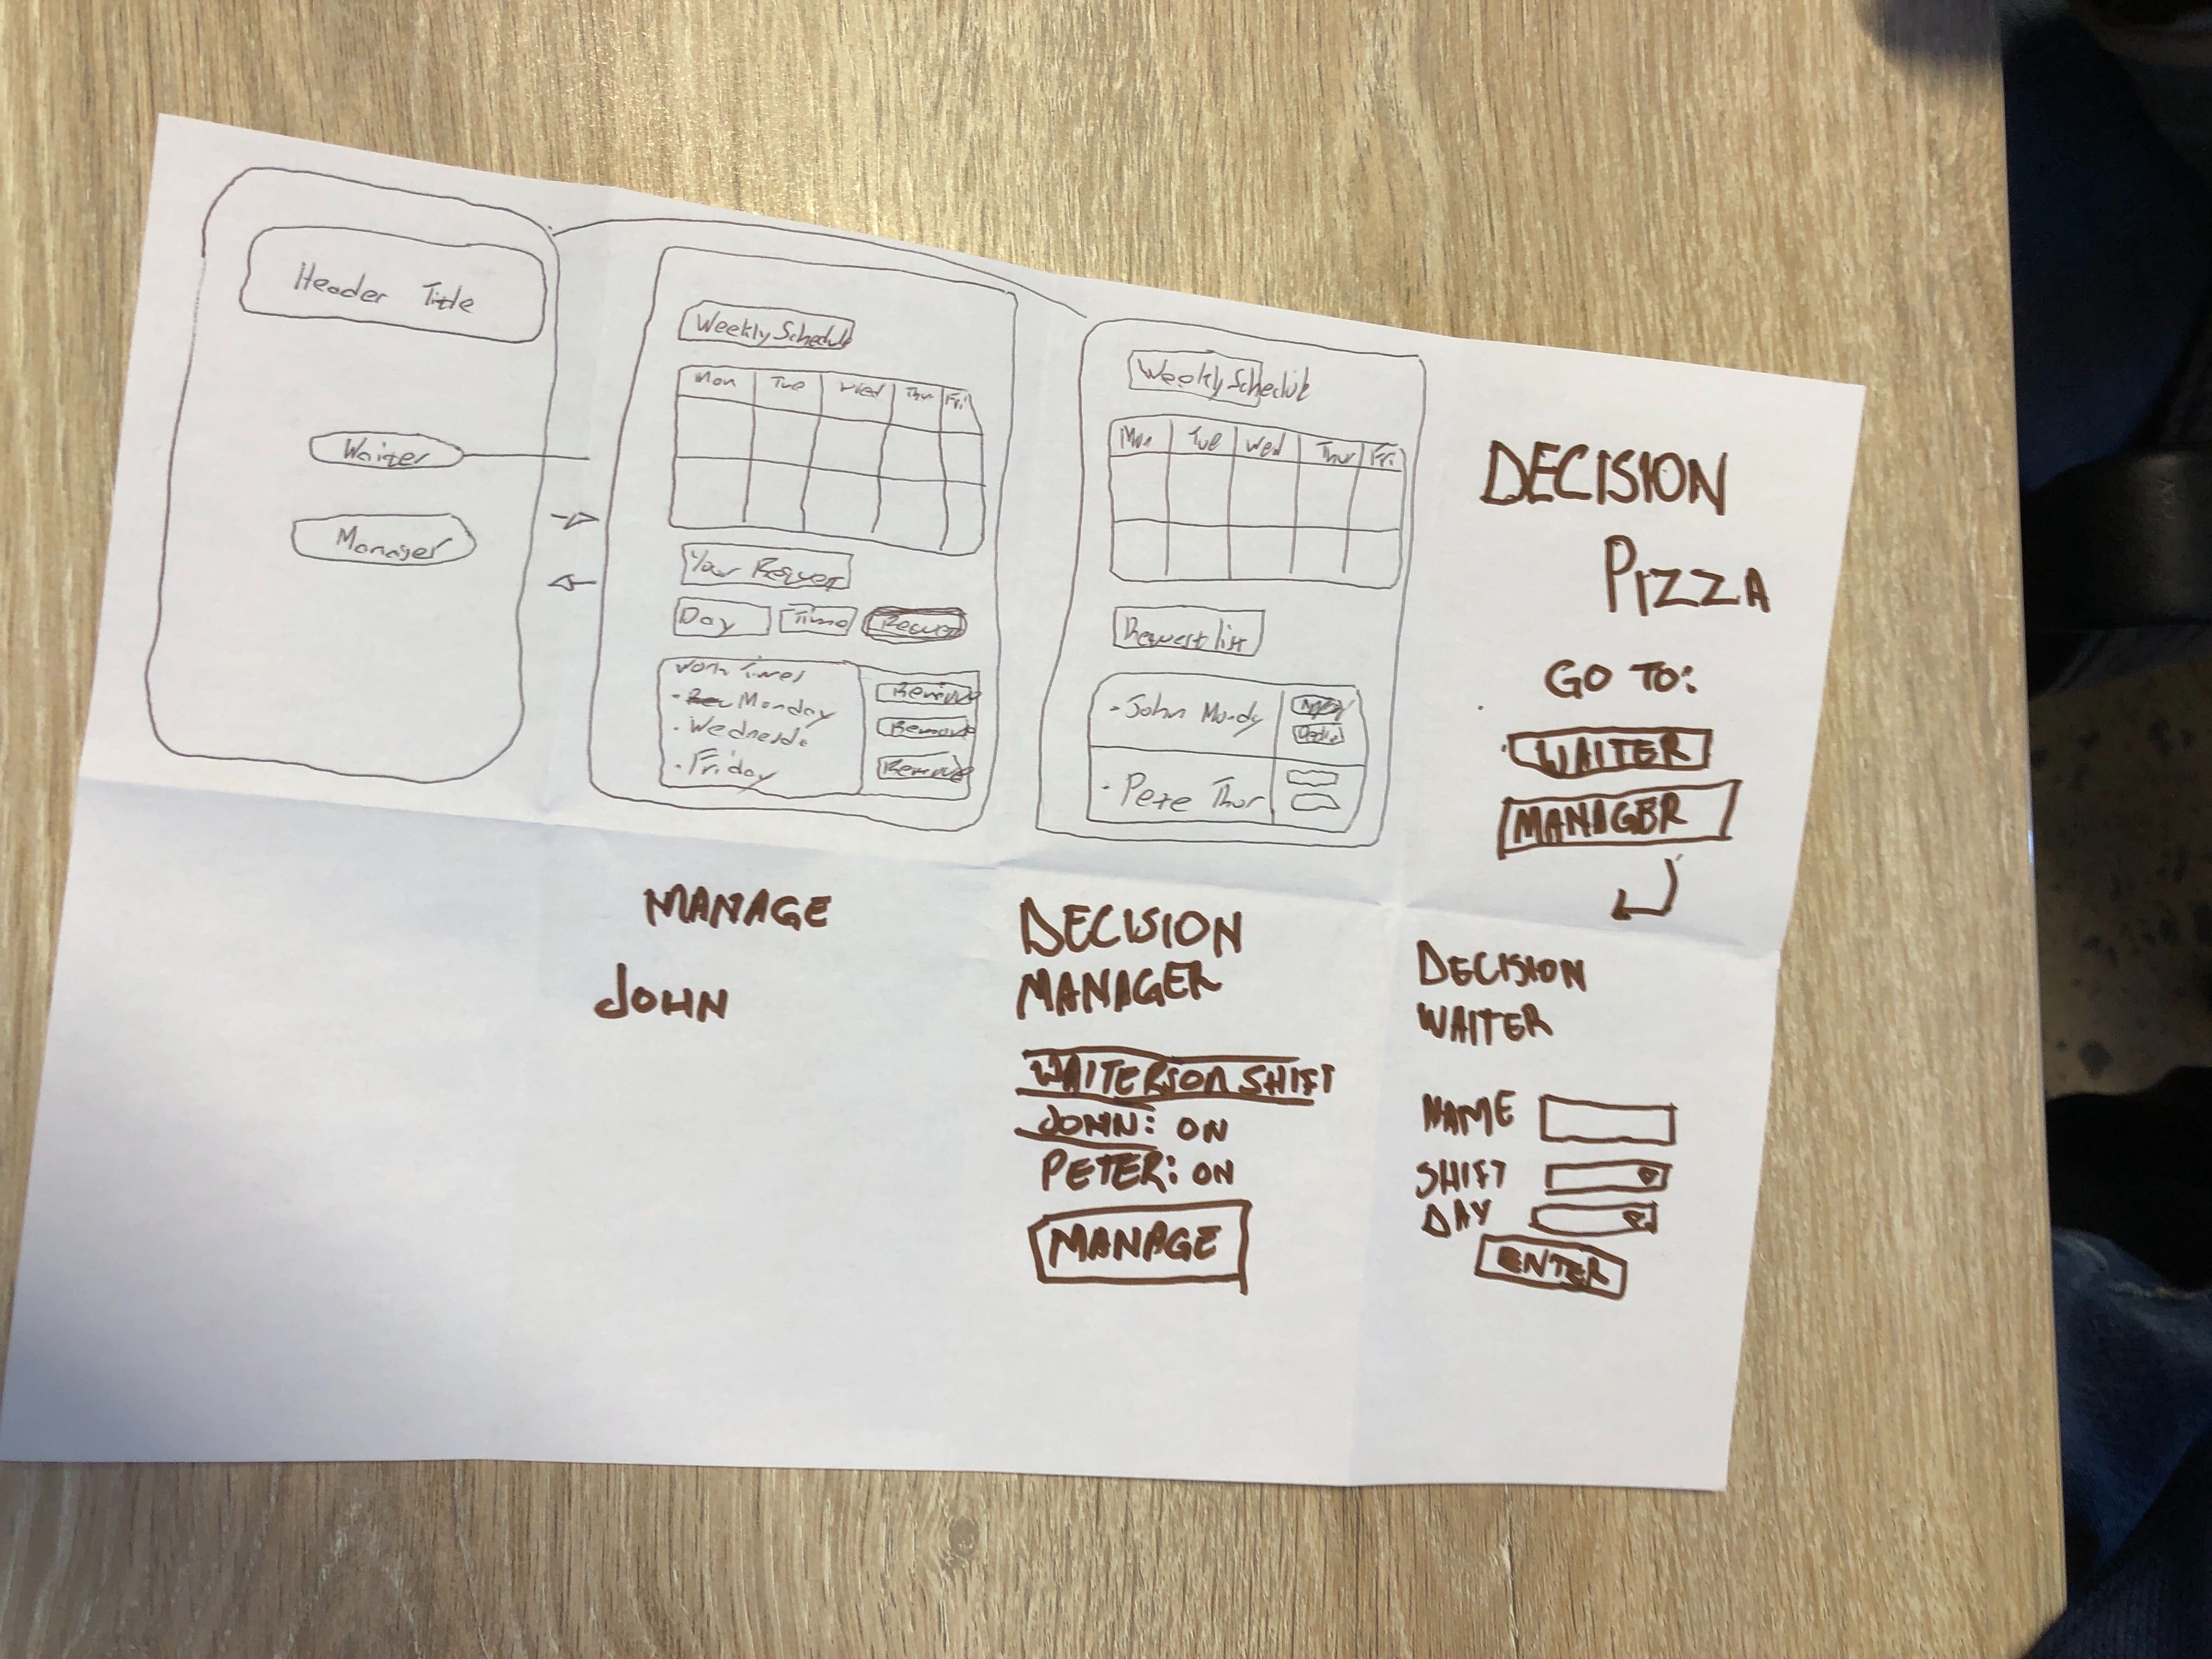 Header Title
Waiter
Manager
Weekly Schedule
Mon Tue Wed Thur Fri
Your Request
Day Time Request
Work Times
- Monday Remove
- Wednesda Remove
- Friday Remove
Weekly Schedule
Mon Tue Wed Thur Fri
Request list
- John Mondy
- Pete Thur
DECISION
PIZZA
GO TO:
WAITER
MANAGER
MANAGE
JOHN
DECISION
MANAGER
WAITERS ON SHIFT
JOHN: ON
PETER: ON
MANAGE
DECISION
WAITER
NAME
SHIFT
DAY
ENTER